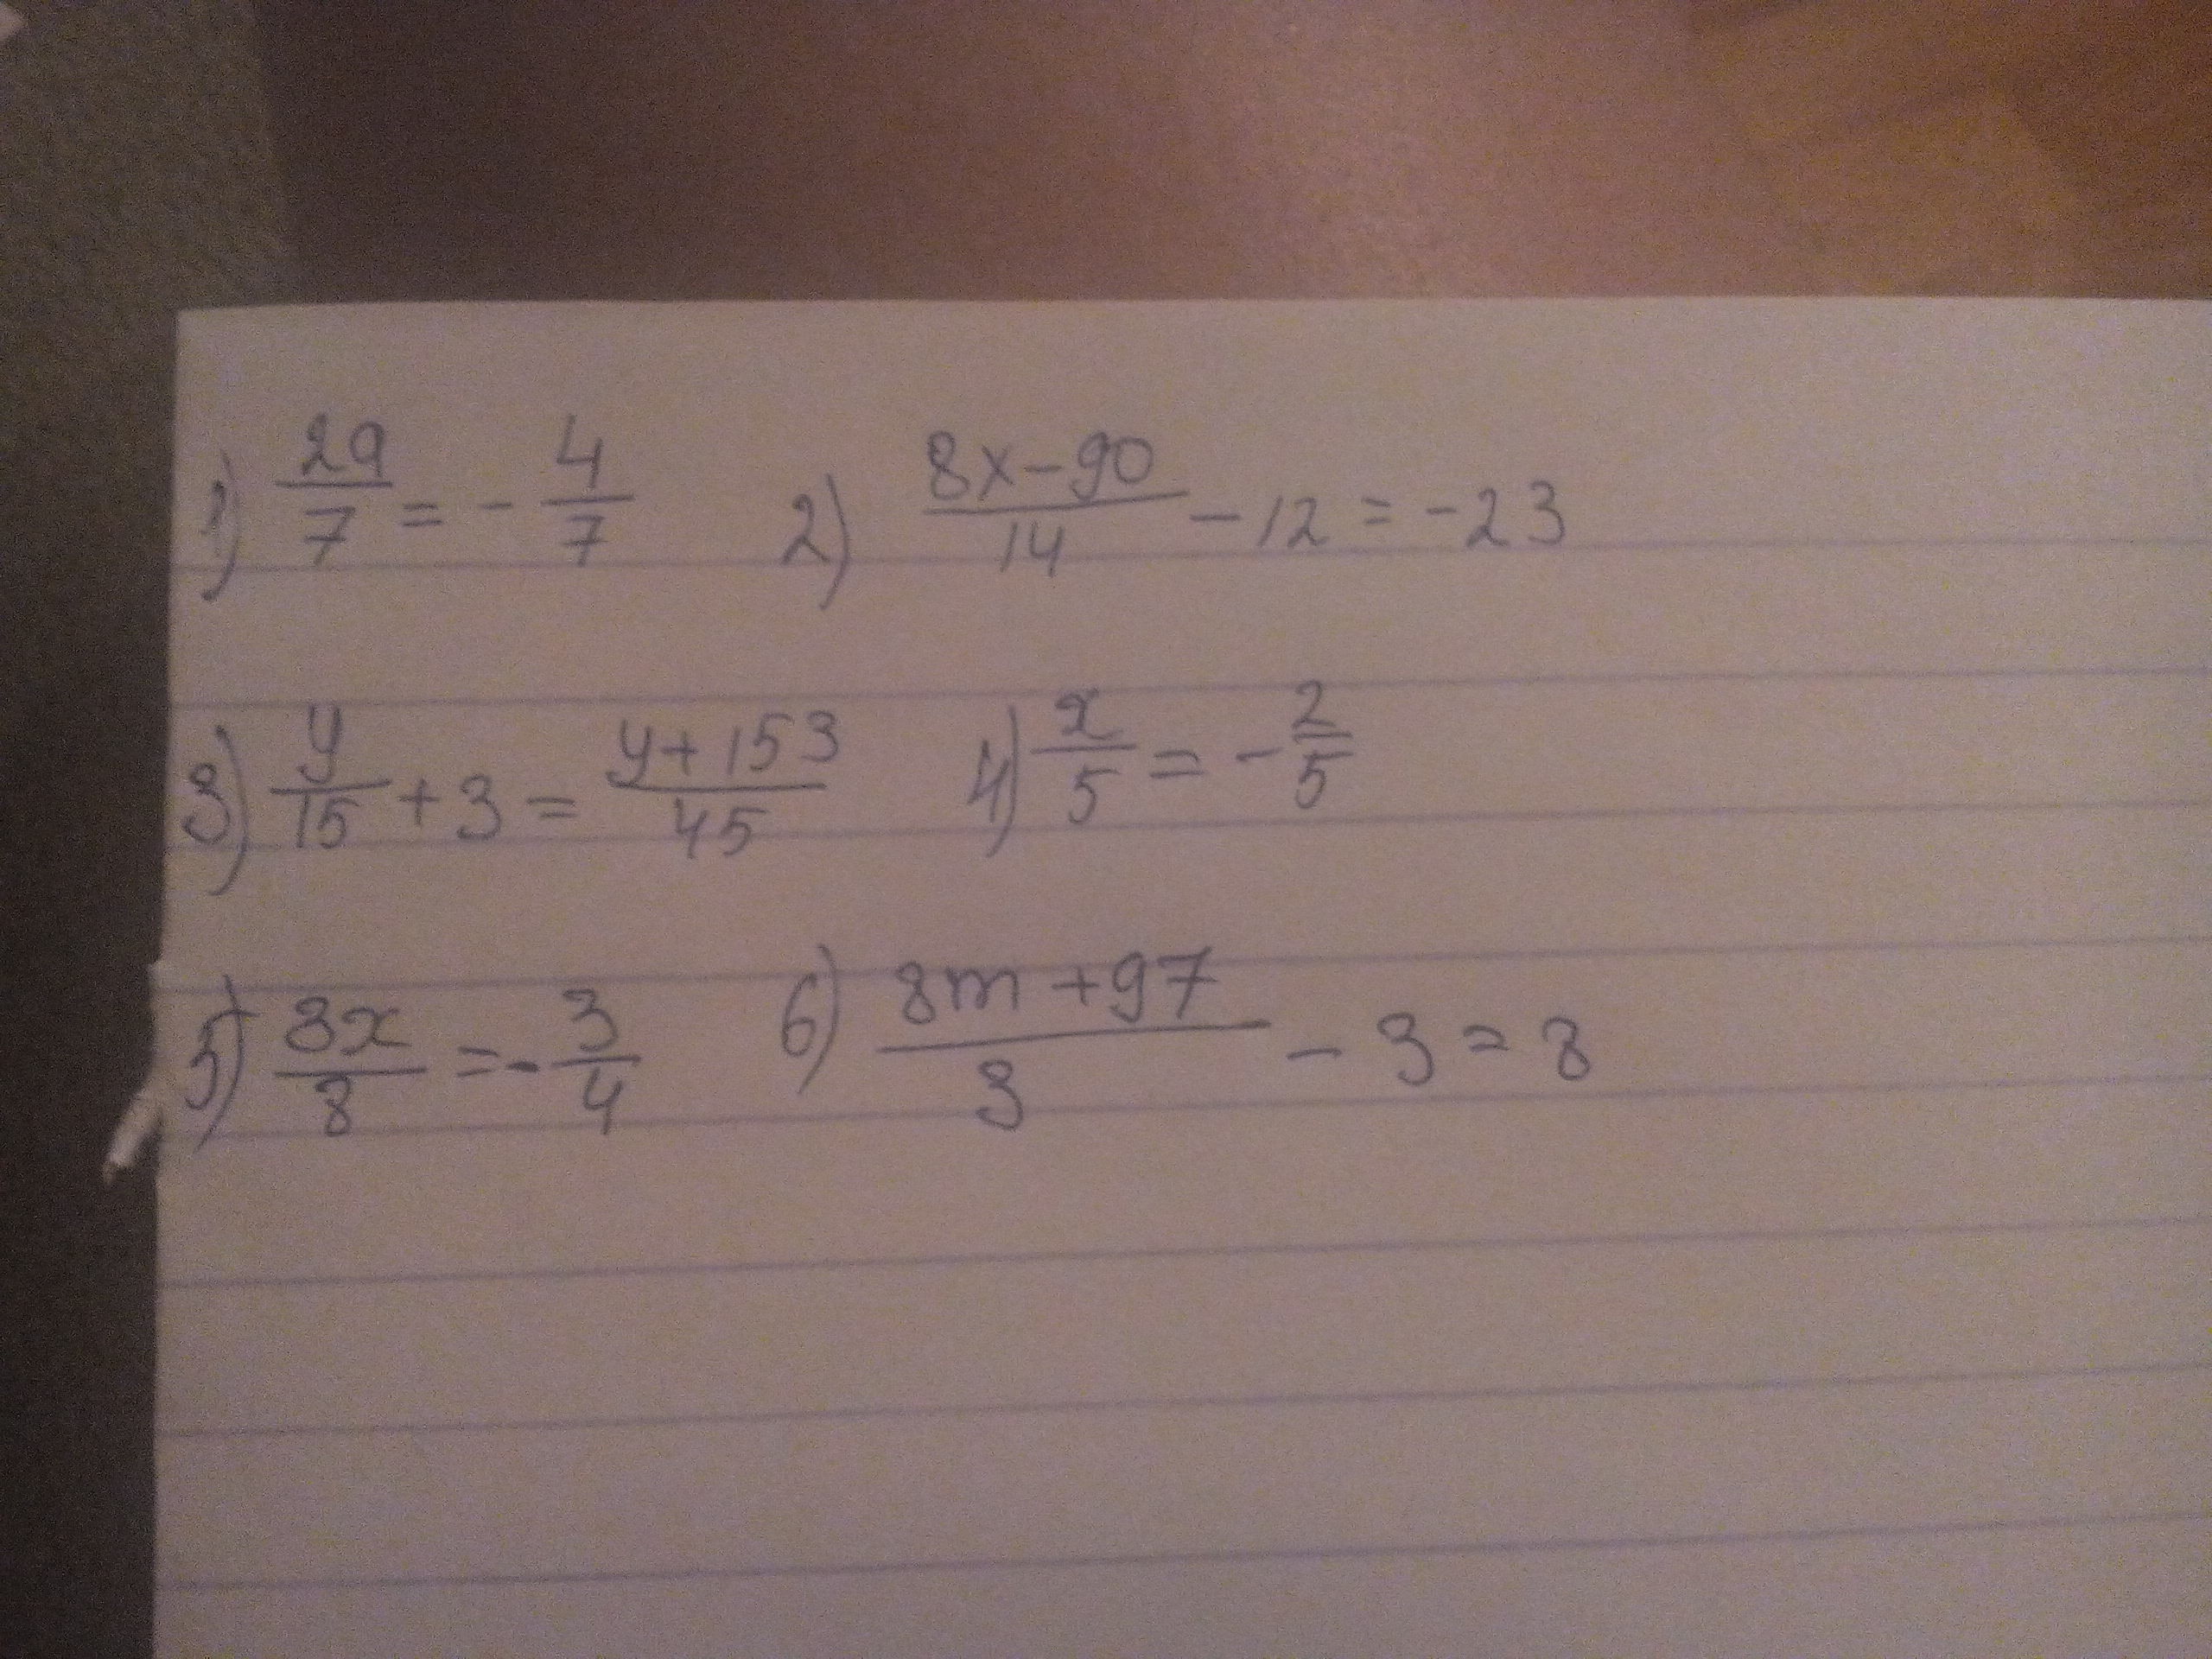 1) 2a/7 = - 4/7 2) 8x-90/14 - 12 = -23
3) y/15 + 3 = y+153/45 4) x/5 = - 2/5
5) 3x/8 = - 3/4 6) 8m+97/3 - 3 = 8